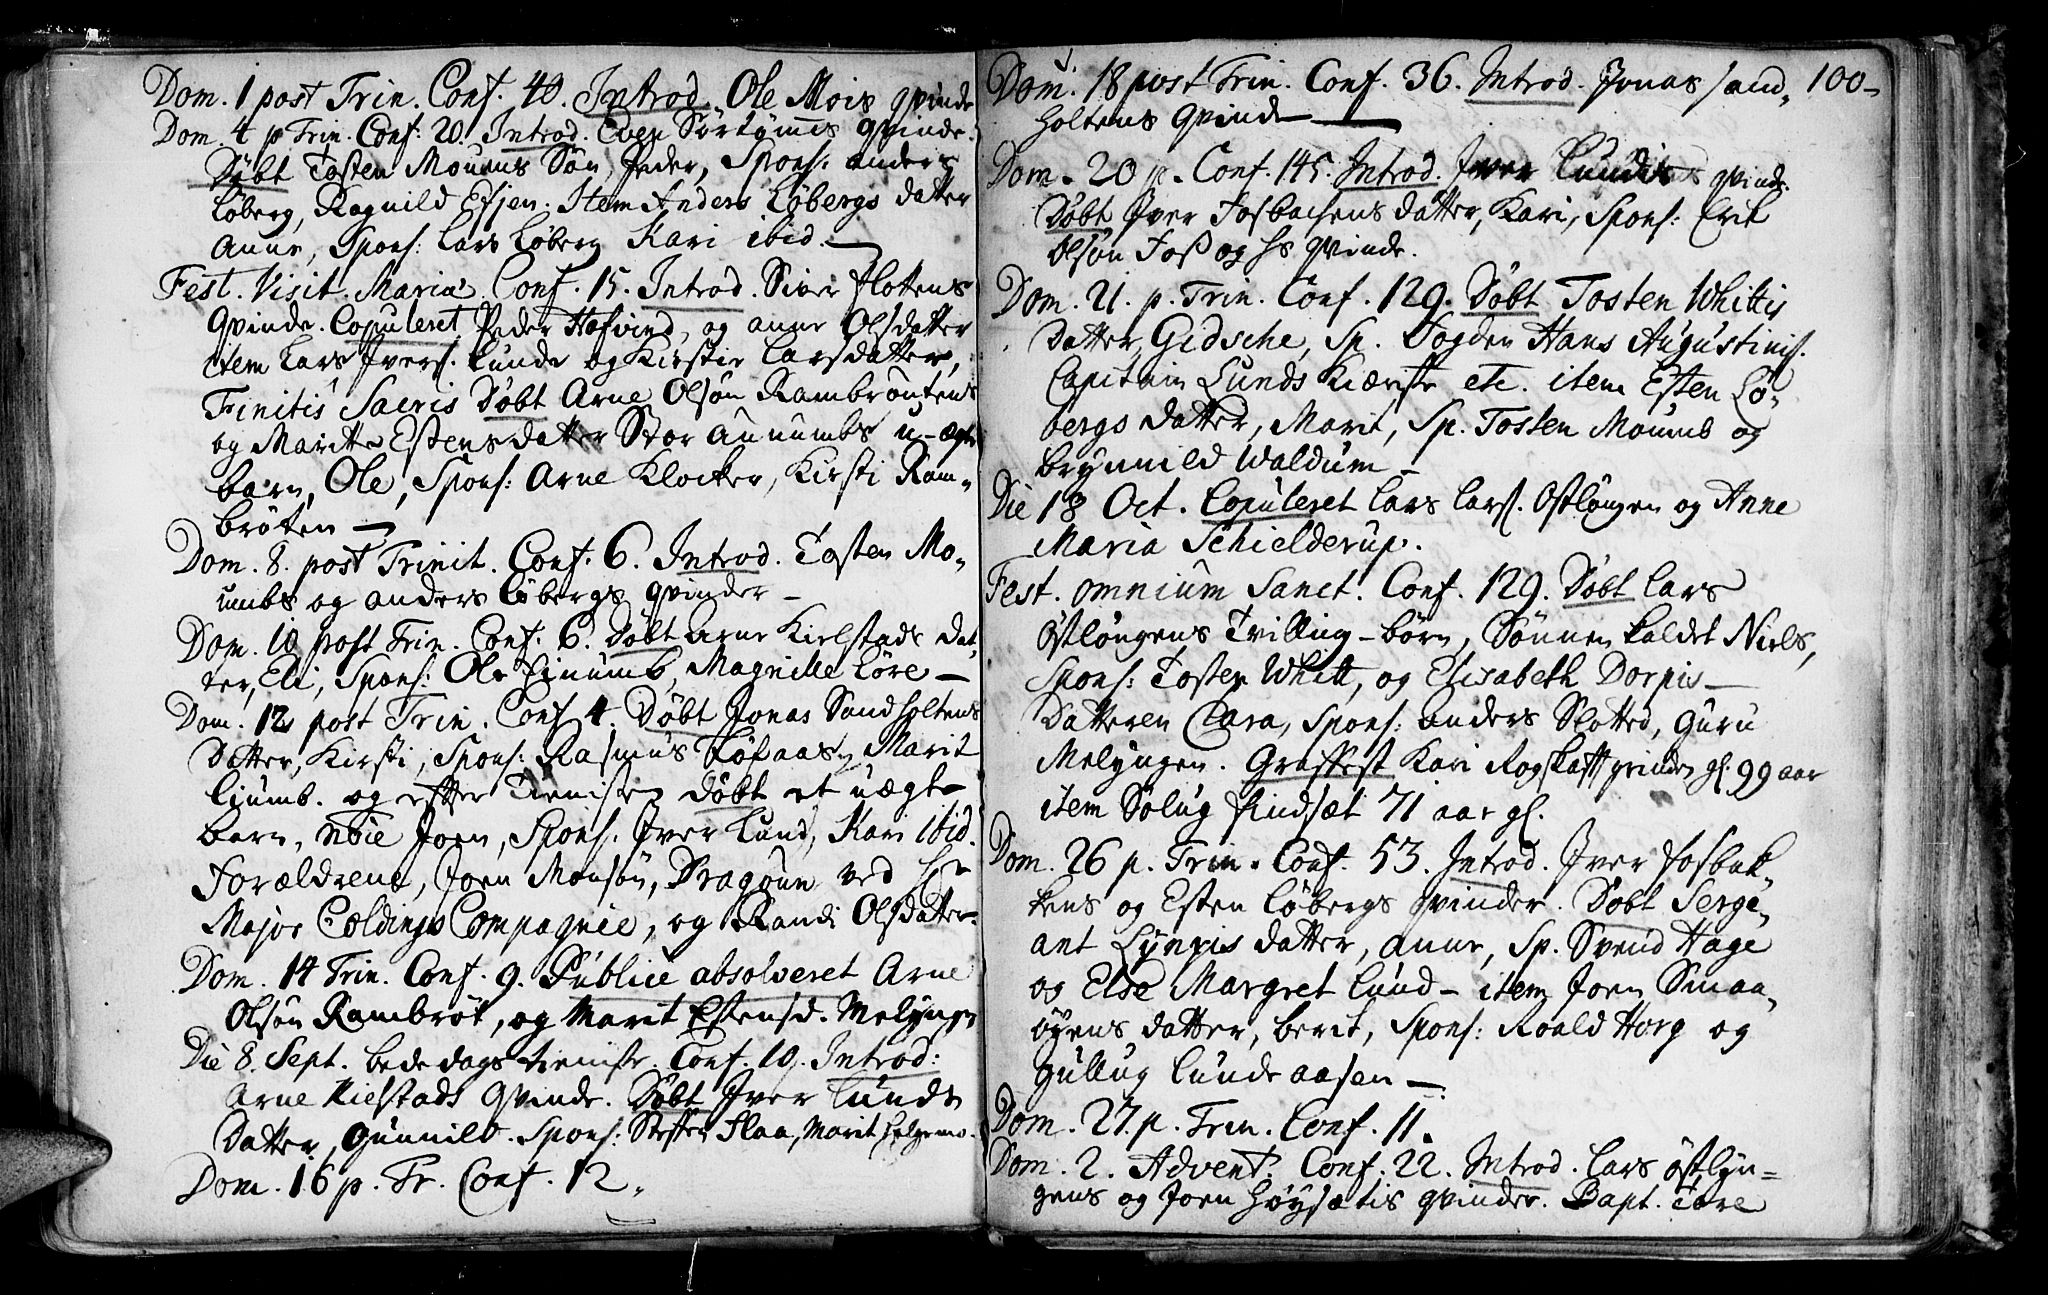 Dom. 1 post Trin. Conf. 40. Introd. Ole Mois qvinde
Dom. 4 p Trin. Conf. 20. Introd. Even Sørtømmes qvinde.
Døbt Tosten Moumbs Søn, Peder, Spons: anders
Løberg, Ragnild Esjen. Item Anders Løbergs datter
Anne, Spons: Lars Løberg Kari ibid.
Fest. Visit. Mariæ Conf. 15. Introd. Siver flottens
Qvinde. Copuleret Peder Hofvind, og anne Olsdatter
item Lars Ivers. Lunde og Kirstie Larsdatter,
Finitis Sacris Døbt Arne Olsøn Rambrøutens
og Maritte Estens datter Stor aunumbs u-ægte
barn, Ole, Spons: Arne Klocker, Kirsti Ram-
brøten
Dom. 8. post Trinit. Conf. 6. Introd. Tosten Mo-
umbs og anders Løbergs qvinder
Dom. 10 post Trin. Conf. 6. Døbt Arne Kielstads dat-
ter, Eli, Spons: Ole finumb, Magnille Løre
Dom. 12 post Trin. Conf 4. Døbt Jonas Sandholtens
datter, Kirsti, Spons: Rasmus Løfaas, Marit
Liumb. og efter Tienisten døbt et uægte
barn, Joen, Spons: Iver Lund, Kari ibid.
Forældrene, Joen Monsøn, Dragoun ved Hr
Major Coldings Compagnie, og Randi Olsdatter.
Dom. 14 Trin. Conf. 9. Publice absolveret Arne
Olsøn Rambrøt, og Marit Estensd. Melyngen
Die 8. Sept. bededags tieniste Conf. 10. Introd:
Arne Kielstads Qvinde. Døbt Iver Lunds
datter, Gunnild. Spons: Steffen Flaa, Marit Helgemo.
Dom. 16 p. Tr. Conf. 12.
Dom. 18 post Trin. Conf. 36. Introd. Jonas Sand- 100-
holtens qvinde
Dom. 20 p. Conf. 145. Introd. Iver Lundes qvinde.
Døbt Iver Fosbachens datter, Kari, Spons: Erik
Olsøn Foss og hs qvinde.
Dom. 21. p. Trin. Conf. 129. Døbt Tosten Whittis
datter, Gidsche, Sp. Fogden Hans Augustinis.
Capitain Lunds Kiæreste etc. item Esten Lø-
bergs datter, Marit, Sp. Tosten Moumb og
brynnild Waldum
Die 18 Oct. Copuleret Lars Lars. Østløngen og Anne
Maria Schielderup.
Fest. omnium Sanct. Conf. 129. Døbt Lars
Østløngens Tvilling-børn, Sønnen kaldet Niels,
Spons: Tosten Whitt, og Elisabeth Dorpis
datteren Clara, Spons: anders Slotted, Guru
Melyngen. Græffest Kari Rogskafft qvinden gl. 99 aar
item Solug findsæt 71 aar gl.
Dom. 26 p. Trin. Conf. 53. Introd. Iver fosbak-
kens og Esten Løbergs qvinder. Døbt Serge-
ant Lyngis datter, anne, Sp. Svend Hage
og Else Margret Lund item Joen Smaa-
øyens datter, berit, Spons: Roald Horg og
Gullug Lundeaasen
Dom. 27. p. Trin. Conf. 11.
Dom. 2. Advent. Conf. 22. Introd. Lars østlyn=
gens og Joen Høysætis qvinder. Bapt. Tore